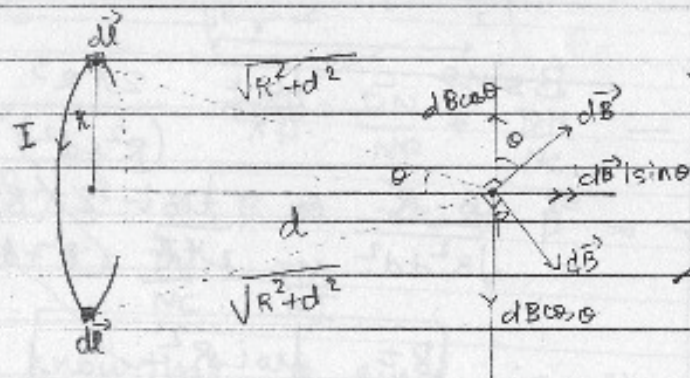 dl⃗
√R²+d²
dBcosθ
R
θ
dB⃗
I
θ
dB⃗ sinθ
d
θ
dB⃗
√R²+d²
dBcosθ
dl⃗